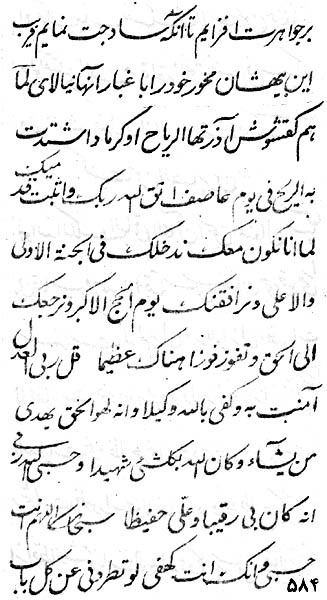 بر جواهرت افزایم تا آنکه ساذجت نمایم فریب
این پهشان مخور خود را با غبار آنها نیالای لما
هم کقشوش اذرتها الریاح او کرماد اشتدت
به الریح فی یوم عاصف اتق الله ربک واثبت قد
لما انا نکون معک ندخلک فی الجنة الاولی
والاعلی و نرافقنک یوم الحج الاکبر و نرجعک
الی الحق و تفوز فوزا هناک عظیما قل ربی العدل
آمنت به وکفی بالله وکیلا و انه لهو الحق یهدی
من یشآء وکان الله بکلشئ شهیدا وحسبی الله ربی
انه کان بی رقیبا و علی حفیظا سبحانک اللهم انت
حسبی و انک انت کهفی لو تطردنی عن کل باب
۵۸۴